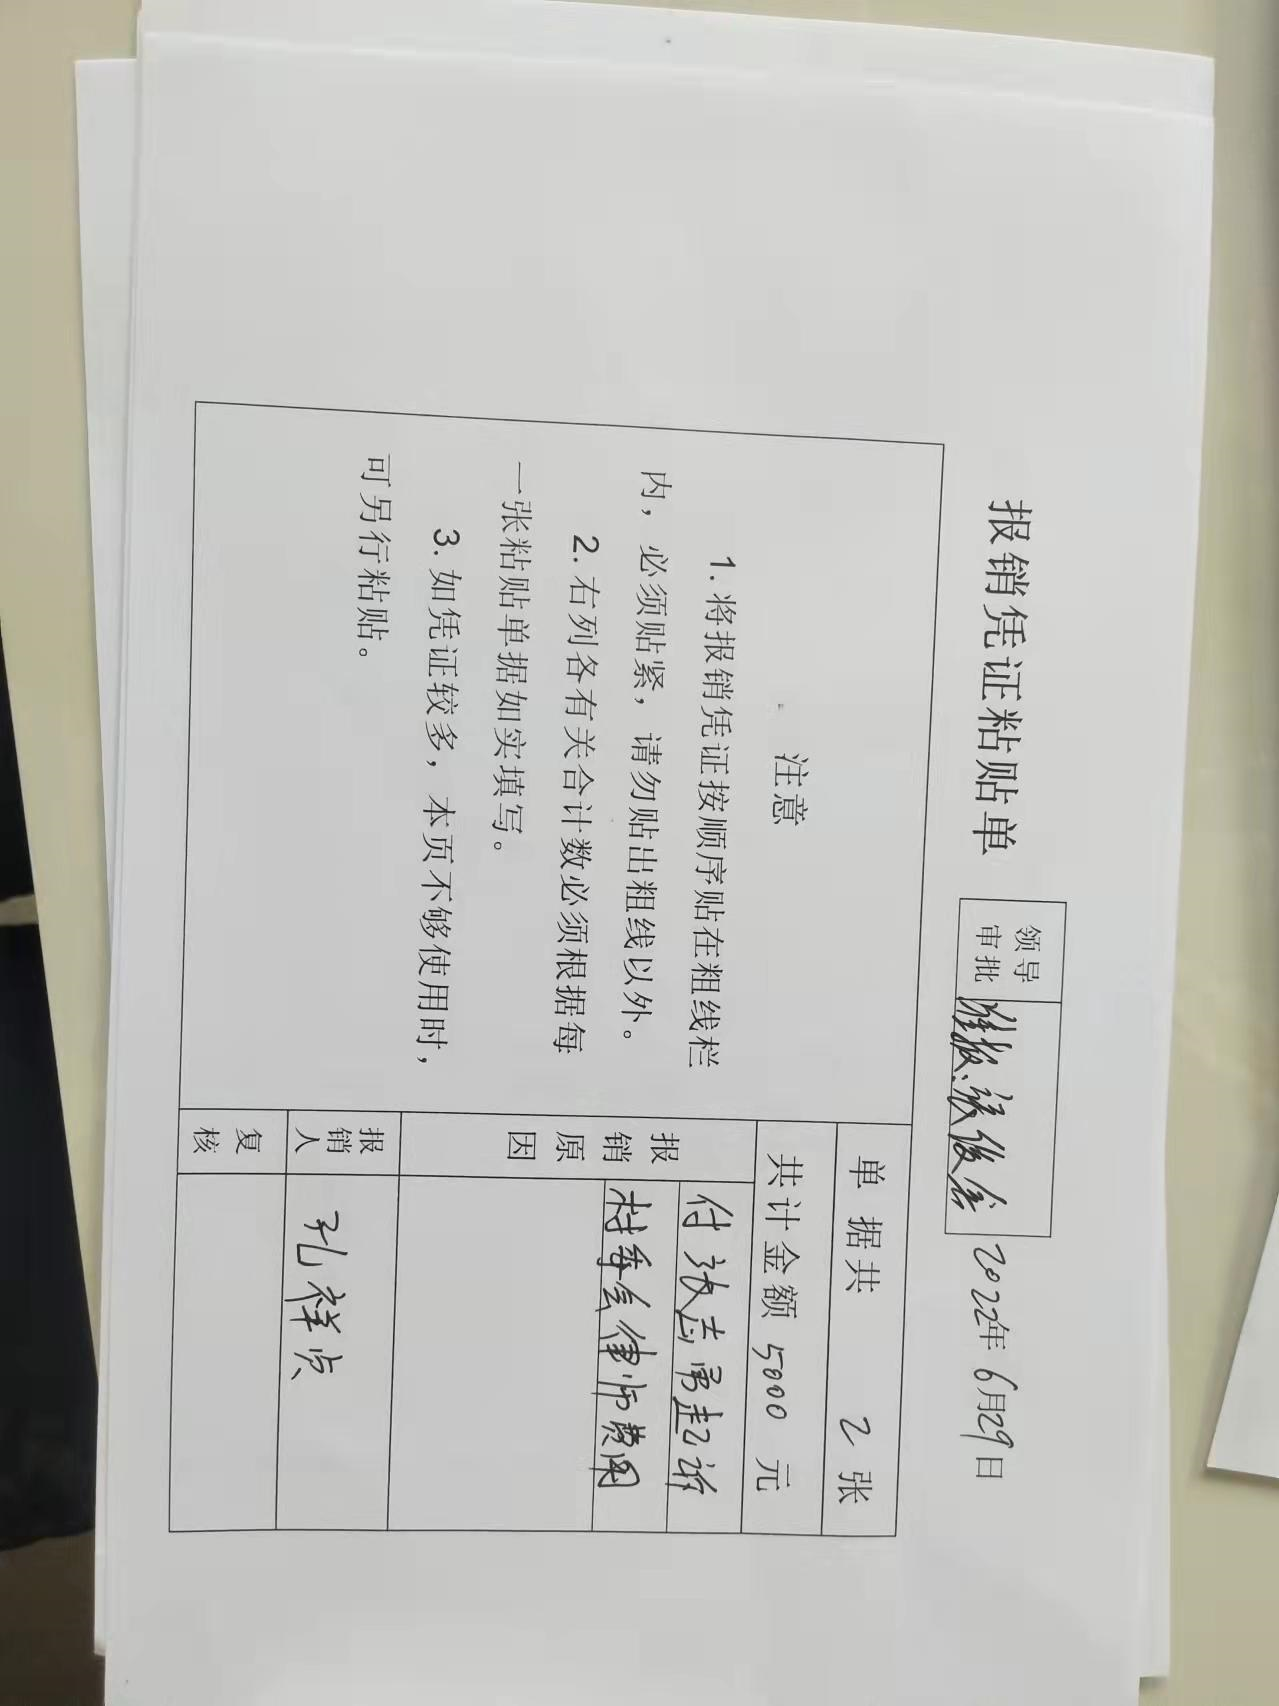 报销凭证粘贴单
领导
审批
准报.张俊合
2022年6月29日
注意
1. 将报销凭证按顺序贴在粗线栏
内，必须贴紧，请勿贴出粗线以外。
2. 右列各有关合计数必须根据每
一张粘贴单据如实填写。
3. 如凭证较多，本页不够使用时，
可另行粘贴。
单据共 2 张
共计金额 5000 元
报销原因
付张志勇起诉
村委会律师费用
报销人
孔祥贞
复核